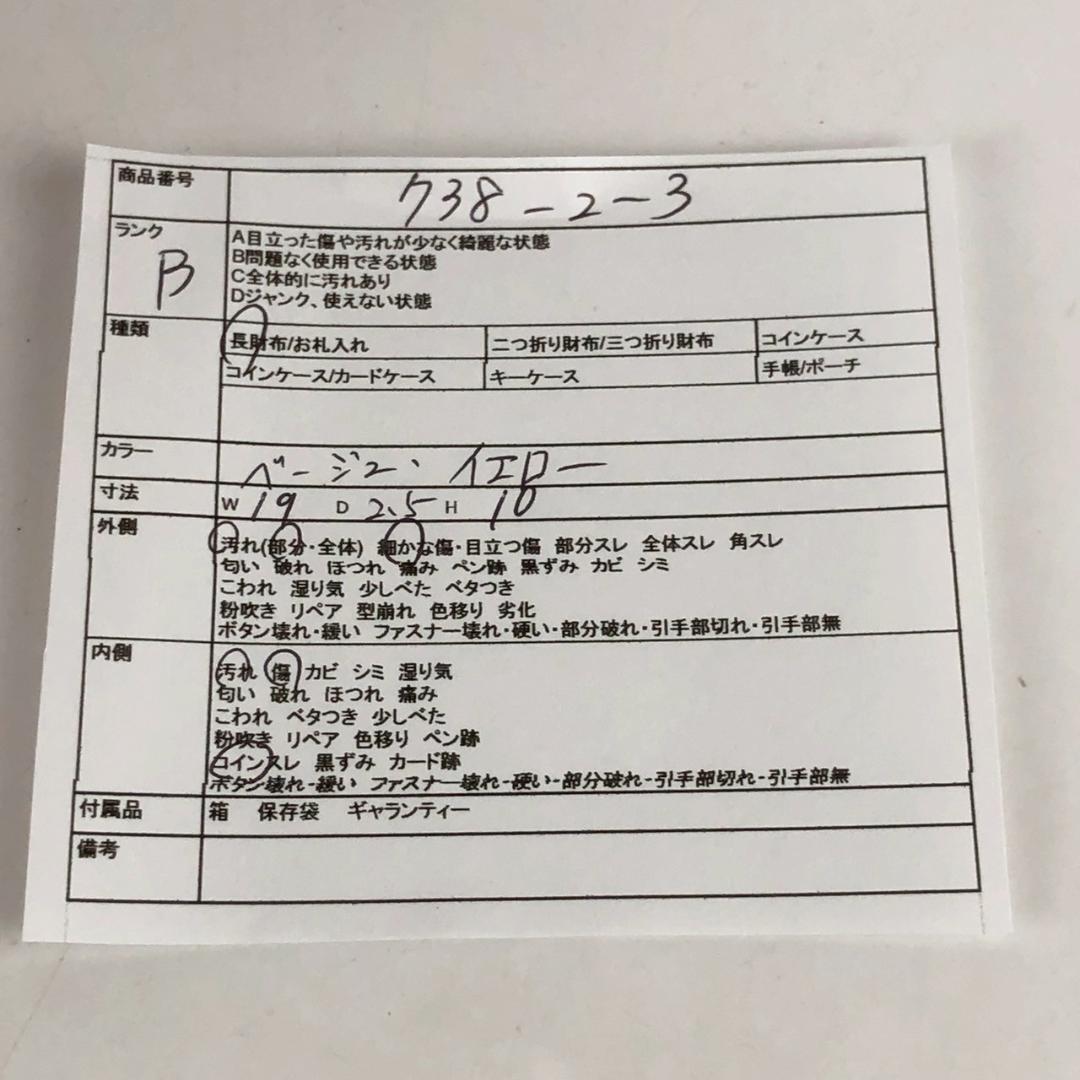 商品番号 738-2-3
ランク B
A目立った傷や汚れが少なく綺麗な状態
B問題なく使用できる状態
C全体的に汚れあり
Dジャンク、使えない状態
種類 長財布/お札入れ 二つ折り財布/三つ折り財布 コインケース
コインケース/カードケース キーケース 手帳/ポーチ
カラー ベージュ・イエロー
寸法 W 19 D 2.5 H 10
外側 汚れ(部分・全体) 細かな傷・目立つ傷 部分スレ 全体スレ 角スレ
匂い 破れ ほつれ 痛み ペン跡 黒ずみ カビ シミ
こわれ 湿り気 少しべた ベタつき
粉吹き リペア 型崩れ 色移り 劣化
ボタン壊れ・緩い ファスナー壊れ・硬い・部分破れ・引手部切れ・引手部無
内側 汚れ 傷 カビ シミ 湿り気
匂い 破れ ほつれ 痛み
こわれ ベタつき 少しべた
粉吹き リペア 色移り ペン跡
コインスレ 黒ずみ カード跡
ボタン壊れ-緩い ファスナー壊れ-硬い-部分破れ-引手部切れ-引手部無
付属品 箱 保存袋 ギャランティー
備考